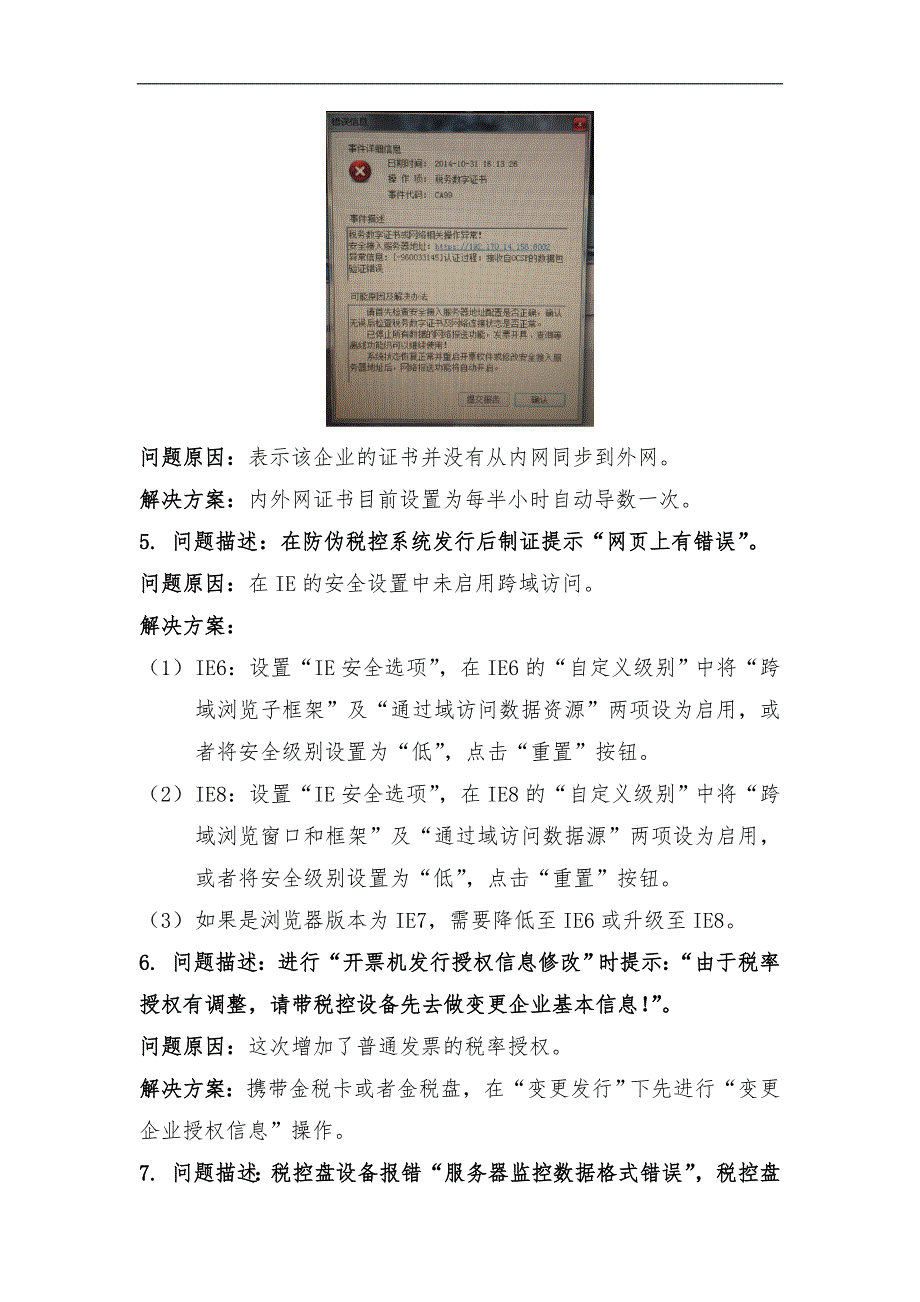 错误信息
事件详细信息
日期时间： 2014-10-31 16 13 26
操 作 项： 税务数字证书
事件代码： CA99
事件描述
税务数字证书或网络相关操作异常！
安全接入服务器地址：https://182.170.14.156:8002
异常信息：[-960033145]认证过程：接收自OCSP的数据包
验证错误
可能原因及解决办法
请首先检查安全接入服务器地址配置是否正确，确认
无误后检查税务数字证书及网络连接状态是否正常。
已停止所有数据的网络报送功能，发票开具、查询等
离线功能仍可以继续使用！
系统状态恢复正常并重启开票软件或修改安全接入服
务器地址后，网络报送功能将自动开启。
提交报告 确认
问题原因：表示该企业的证书并没有从内网同步到外网。
解决方案：内外网证书目前设置为每半小时自动导数一次。
5. 问题描述：在防伪税控系统发行后制证提示“网页上有错误”。
问题原因：在 IE 的安全设置中未启用跨域访问。
解决方案：
（1）IE6：设置“IE 安全选项”，在 IE6 的“自定义级别”中将“跨
域浏览子框架”及“通过域访问数据资源”两项设为启用，或
者将安全级别设置为“低”，点击“重置”按钮。
（2）IE8：设置“IE 安全选项”，在 IE8 的“自定义级别”中将“跨
域浏览窗口和框架”及“通过域访问数据源”两项设为启用，
或者将安全级别设置为“低”，点击“重置”按钮。
（3）如果是浏览器版本为 IE7，需要降低至 IE6 或升级至 IE8。
6. 问题描述：进行“开票机发行授权信息修改”时提示：“由于税率
授权有调整，请带税控设备先去做变更企业基本信息！”。
问题原因：这次增加了普通发票的税率授权。
解决方案：携带金税卡或者金税盘，在“变更发行”下先进行“变更
企业授权信息”操作。
7. 问题描述：税控盘设备报错“服务器监控数据格式错误”，税控盘